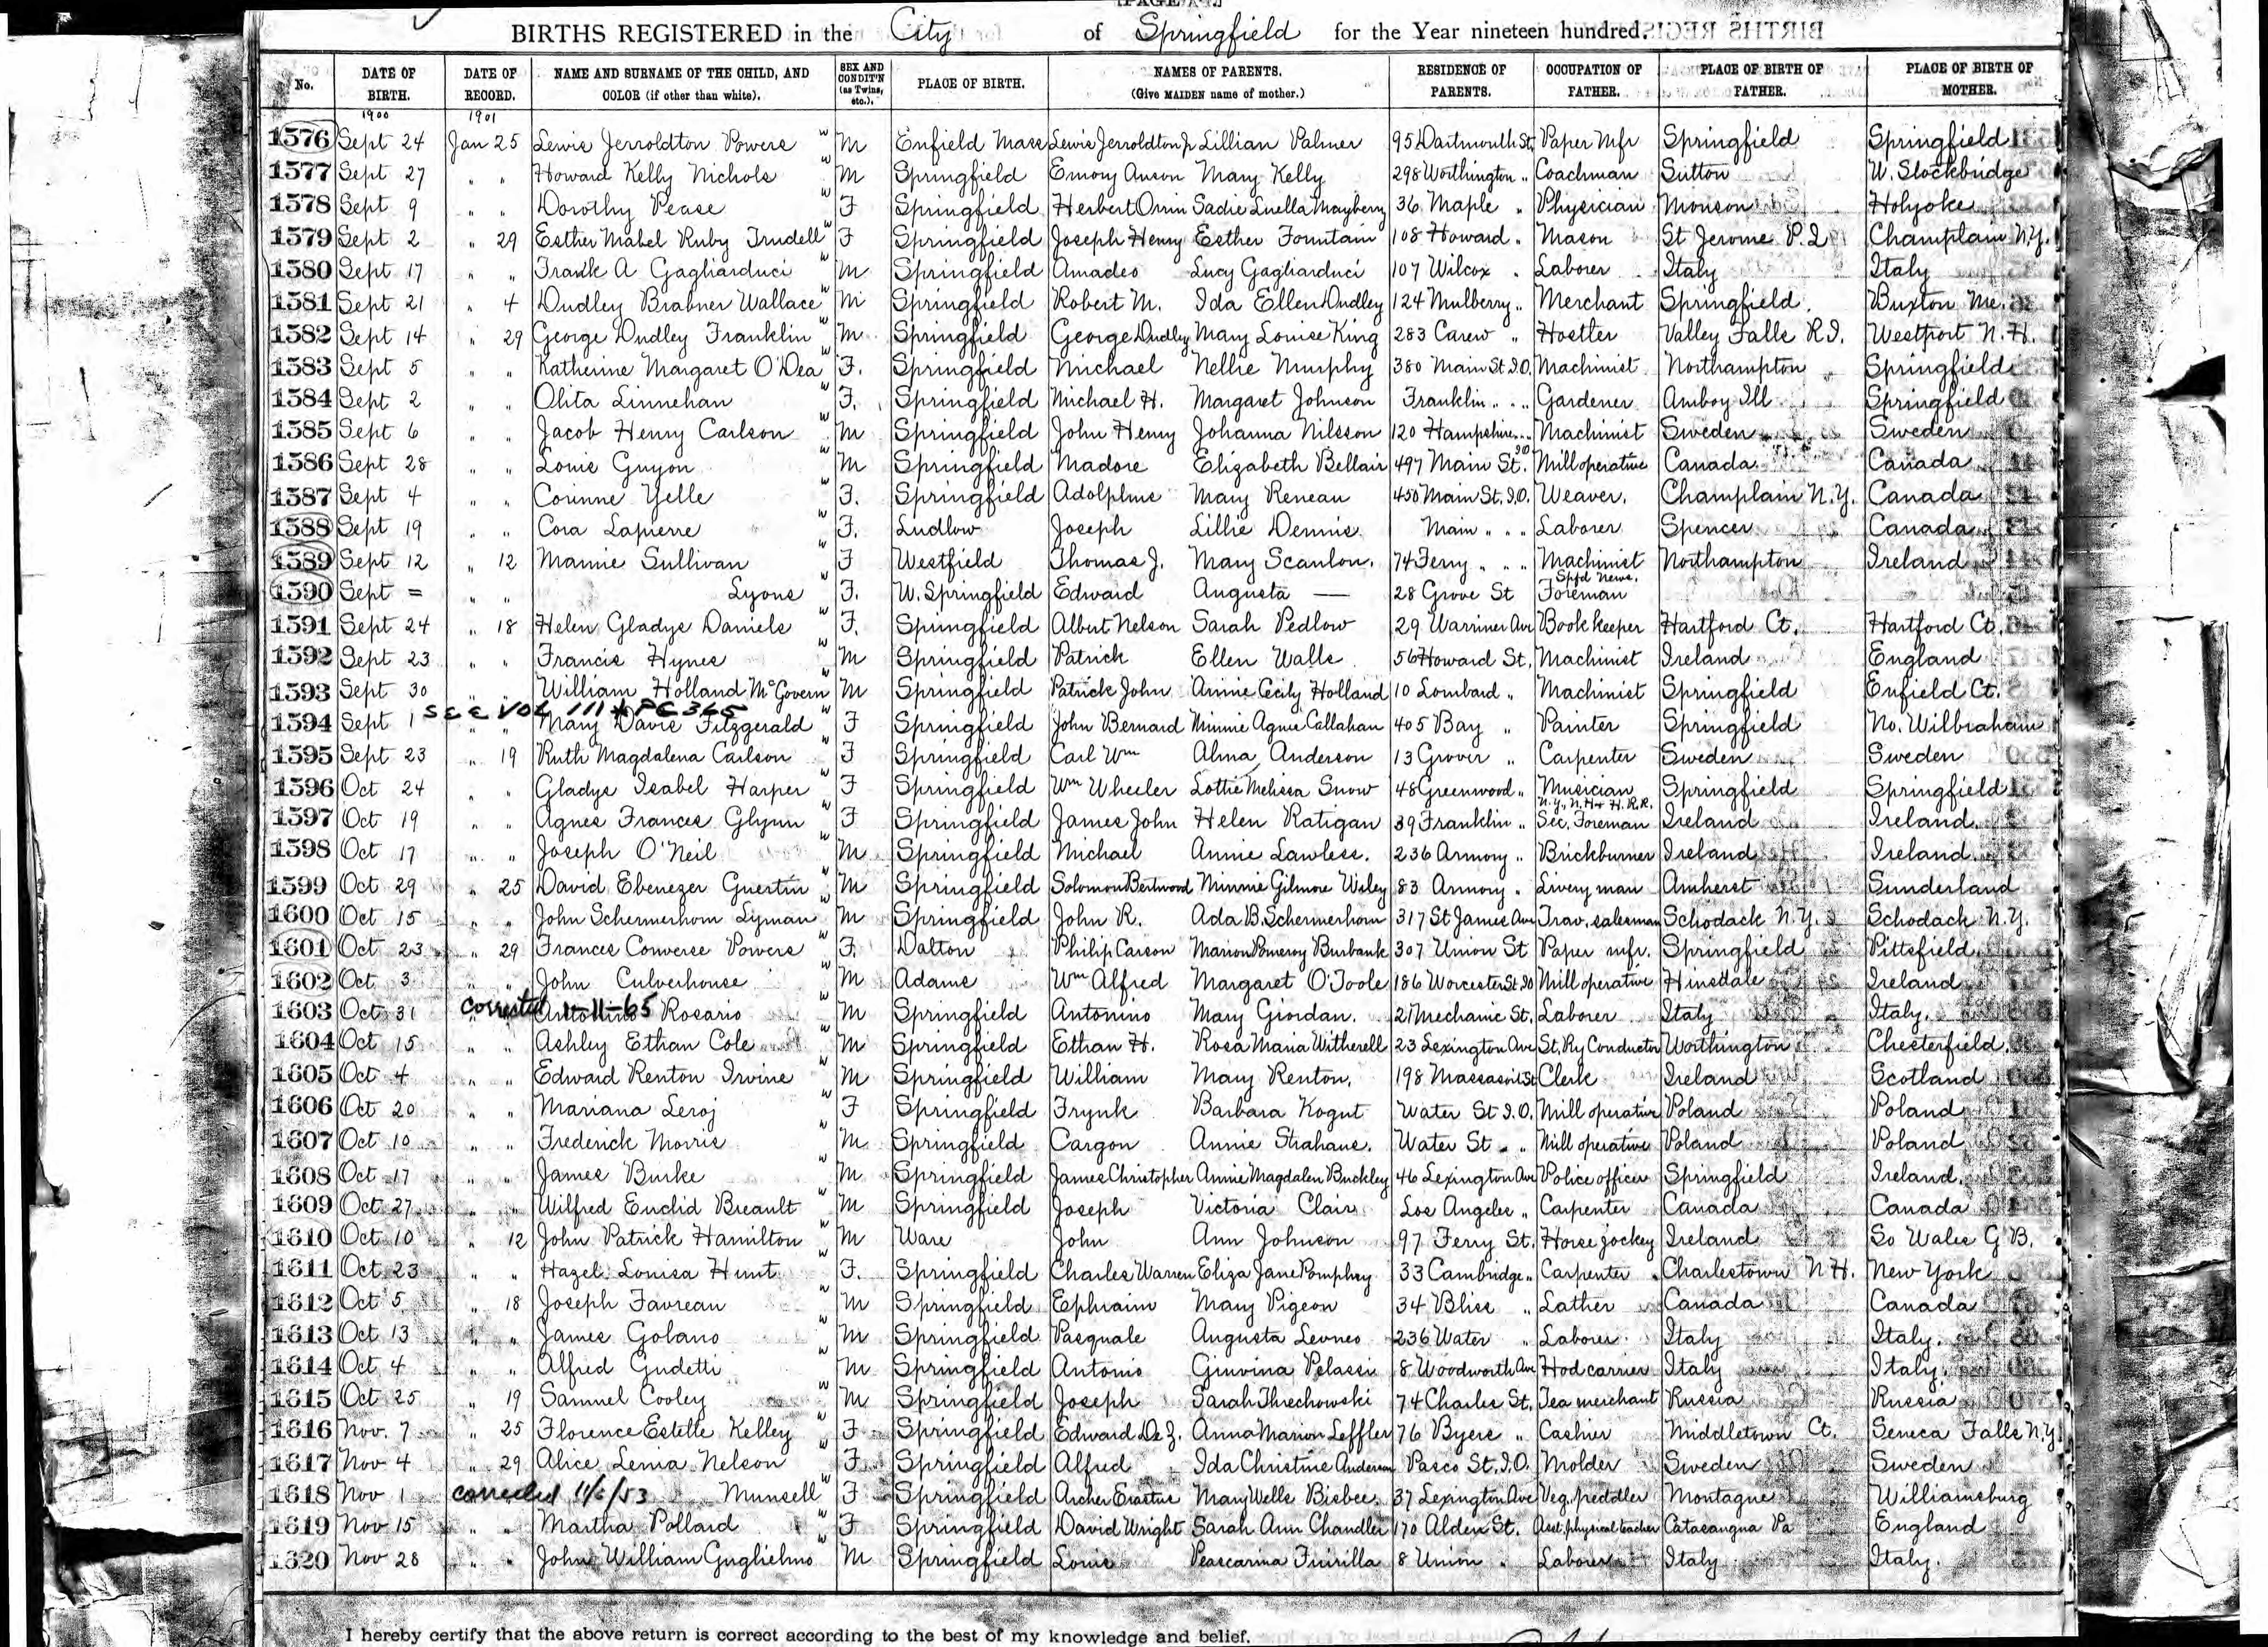 BIRTHS REGISTERED in the City of Springfield for the Year nineteen hundred.
No. DATE OF BIRTH. DATE OF RECORD. NAME AND SURNAME OF THE CHILD, AND COLOR (if other than white). SEX AND CONDIT'N (as Twins, etc.). PLACE OF BIRTH. NAMES OF PARENTS. (Give MAIDEN name of mother.) RESIDENCE OF PARENTS. OCCUPATION OF FATHER. PLACE OF BIRTH OF FATHER. PLACE OF BIRTH OF MOTHER.
1900 1901
1576 Sept 24 Jan 25 Lewis Jerroldton Powers w M Enfield Mass Lewis Jerroldton Jr Lillian Palmer 95 Dartmouth St. Paper Mfr Springfield Springfield
1577 Sept 27 " " Howard Kelly Nichols w M Springfield Emory Anson Mary Kelly 298 Worthington " Coachman Sutton W. Stockbridge
1578 Sept 9 " " Dorothy Pease w F Springfield Herbert Orrin Sadie Luella Mayberry 36 Maple " Physician Monson Holyoke
1579 Sept 2 " 29 Esther Mabel Ruby Trudell w F Springfield Joseph Henry Esther Fountain 108 Howard " Mason St Jerome P.Q Champlain N.Y.
1580 Sept 17 " " Frank A Gagliarduci w M Springfield Amadeo Lucy Gagliarduci 107 Wilcox " Laborer Italy Italy
1581 Sept 21 " 4 Dudley Brabner Wallace w M Springfield Robert M. Ida Ellen Dudley 124 Mulberry " Merchant Springfield Buxton Me.
1582 Sept 14 " 29 George Dudley Franklin w M Springfield George Dudley Mary Louise King 283 Carew " Hostler Valley Falls R.I. Westport N.H.
1583 Sept 5 " " Katherine Margaret O'Dea w F. Springfield Michael Nellie Murphy 380 Main St I.O. Machinist Northampton Springfield
1584 Sept 2 " " Olita Linnehan w F. Springfield Michael H. Margaret Johnson Franklin " " " Gardener Amboy Ill Springfield
1585 Sept 6 " " Jacob Henry Carlson w M Springfield John Henry Johanna Nilsson 120 Hampshire " " Machinist Sweden Sweden
1586 Sept 28 " " Louis Guyon w M Springfield Madore Elizabeth Bellair 497 Main St. I.O. Mill operative Canada Canada
1587 Sept 4 " " Corinne Yelle w F. Springfield Adolphus Mary Reneau 450 Main St. I.O. Weaver. Champlain N.Y. Canada
1588 Sept 19 " " Cora Lapierre w F. Ludlow Joseph Lillie Dennis Main " " " Laborer Spencer Canada
1589 Sept 12 " 12 Mamie Sullivan w F Westfield Thomas J. Mary Scanlon. 74 Ferry " " " Machinist Northampton Ireland
1590 Sept = " " Lyons w F. W. Springfield Edward Augusta — 28 Grove St Spfd News. Foreman
1591 Sept 24 " 18 Helen Gladys Daniels w F. Springfield Albert Nelson Sarah Pedlow 29 Warriner Ave Book keeper Hartford Ct. Hartford Ct.
1592 Sept 23 " " Francis Hynes w M Springfield Patrick Ellen Walls 56 Howard St. Machinist Ireland England
1593 Sept 30 " " William Holland McGovern w M Springfield Patrick John Annie Cecily Holland 10 Lombard " Machinist Springfield Enfield Ct.
SEE VOL 111 * PG 365
1594 Sept 1 " " Mary Davis Fitzgerald w F Springfield John Bernard Minnie Agnes Callahan 405 Bay " Painter Springfield No. Wilbraham
1595 Sept 23 " 19 Ruth Magdalena Carlson w F Springfield Carl Wm Alma Anderson 13 Grover " Carpenter Sweden Sweden
1596 Oct 24 " " Gladys Isabel Harper w F Springfield Wm Wheeler Lottie Melissa Snow 48 Greenwood " Musician Springfield Springfield
1597 Oct 19 " " Agnes Frances Glynn w F Springfield James John Helen Ratigan 39 Franklin " N.Y., N.H & H.R.R. Sec. Foreman Ireland Ireland.
1598 Oct 17 " " Joseph O'Neil w M Springfield Michael Annie Lawless. 236 Armory " Brickburner Ireland Ireland.
1599 Oct 29 " 25 David Ebenezer Guertin w M Springfield Solomon Bertwood Minnie Gilmore Wiley 83 Armory " Livery man Amherst Sunderland
1600 Oct 15 " " John Schermerhorn Lyman w M Springfield John R. Ada B. Schermerhorn 317 St James Ave Trav. salesman Schodack N.Y. Schodack N.Y.
1601 Oct 23 " 29 Frances Converse Powers w F. Dalton Philip Carson Marion Pomeroy Burbank 307 Union St Paper mfr. Springfield Pittsfield.
1602 Oct 3 " " John Culverhouse w M Adams Wm Alfred Margaret O'Toole 186 Worcester St. IO Mill operative Hinsdale Ireland
1603 Oct 31 corrected 11-65 Rosario w M Springfield Antonino Mary Giordan. 21 Mechanic St. Laborer Italy Italy.
1604 Oct 15 " " Ashley Ethan Cole w M Springfield Ethan H. Rosa Maria Witherell 23 Lexington Ave St. Ry Conductor Worthington Chesterfield.
1605 Oct 4 " " Edward Renton Irvine w M Springfield William Mary Renton. 198 Massasoit St Clerk Ireland Scotland
1606 Oct 20 " " Mariana Leroj w F Springfield Frynk Barbara Kogut Water St I.O. Mill operative Poland Poland
1607 Oct 10 " " Frederick Morris w M Springfield Cargon Annie Strahans. Water St " " Mill operative Poland Poland
1608 Oct 17 " " James Burke w M Springfield James Christopher Annie Magdalen Buckley 46 Lexington Ave Police officer Springfield Ireland.
1609 Oct 27 " " Wilfred Euclid Breault w M Springfield Joseph Victoria Clair Los Angeles " Carpenter Canada Canada
1610 Oct 10 " 12 John Patrick Hamilton w M Ware John Ann Johnson 97 Ferry St. Horse jockey Ireland So Wales G B.
1611 Oct 23 " " Hazel Louisa Hunt w F. Springfield Charles Warren Eliza Jane Pomphrey 33 Cambridge " Carpenter Charlestown N.H. New York
1612 Oct 5 " 18 Joseph Favreau w M Springfield Ephraim Mary Pigeon 34 Bliss " Lather Canada Canada
1613 Oct 13 " " James Golano w M Springfield Pasquale Augusta Levneo 236 Water " Laborer Italy Italy.
1614 Oct 4 " " Alfred Gudetti w M Springfield Antonio Giuvina Pelassi 8 Woodworth Ave Hod carrier Italy Italy.
1615 Oct 25 " 19 Samuel Cooley w M Springfield Joseph Sarah Threchowski 74 Charles St. Tea merchant Russia Russia
1616 Nov. 7 " 25 Florence Estelle Kelley w F Springfield Edward De Z. Anna Marion Leffler 76 Byers " Cashier Middletown Ct. Seneca Falls N.Y.
1617 Nov 4 " 29 Alice Lenia Nelson w F Springfield Alfred Ida Christine Anderson Pasco St. I.O. Molder Sweden Sweden
1618 Nov 1 corrected 11/6/53 Munsell w F Springfield Archer Erastus Mary Wells Bisbee. 37 Lexington Ave Veg. peddler Montague Williamsburg
1619 Nov 15 " " Martha Pollard w F Springfield David Wright Sarah Ann Chandler 170 Alden St. Asst. physical teacher Catasauqua Pa England
1620 Nov 28 " " John William Guglielmo w M Springfield Louis Peascarina Fuirilla 8 Union " Laborer Italy Italy.
I hereby certify that the above return is correct according to the best of my knowledge and belief.